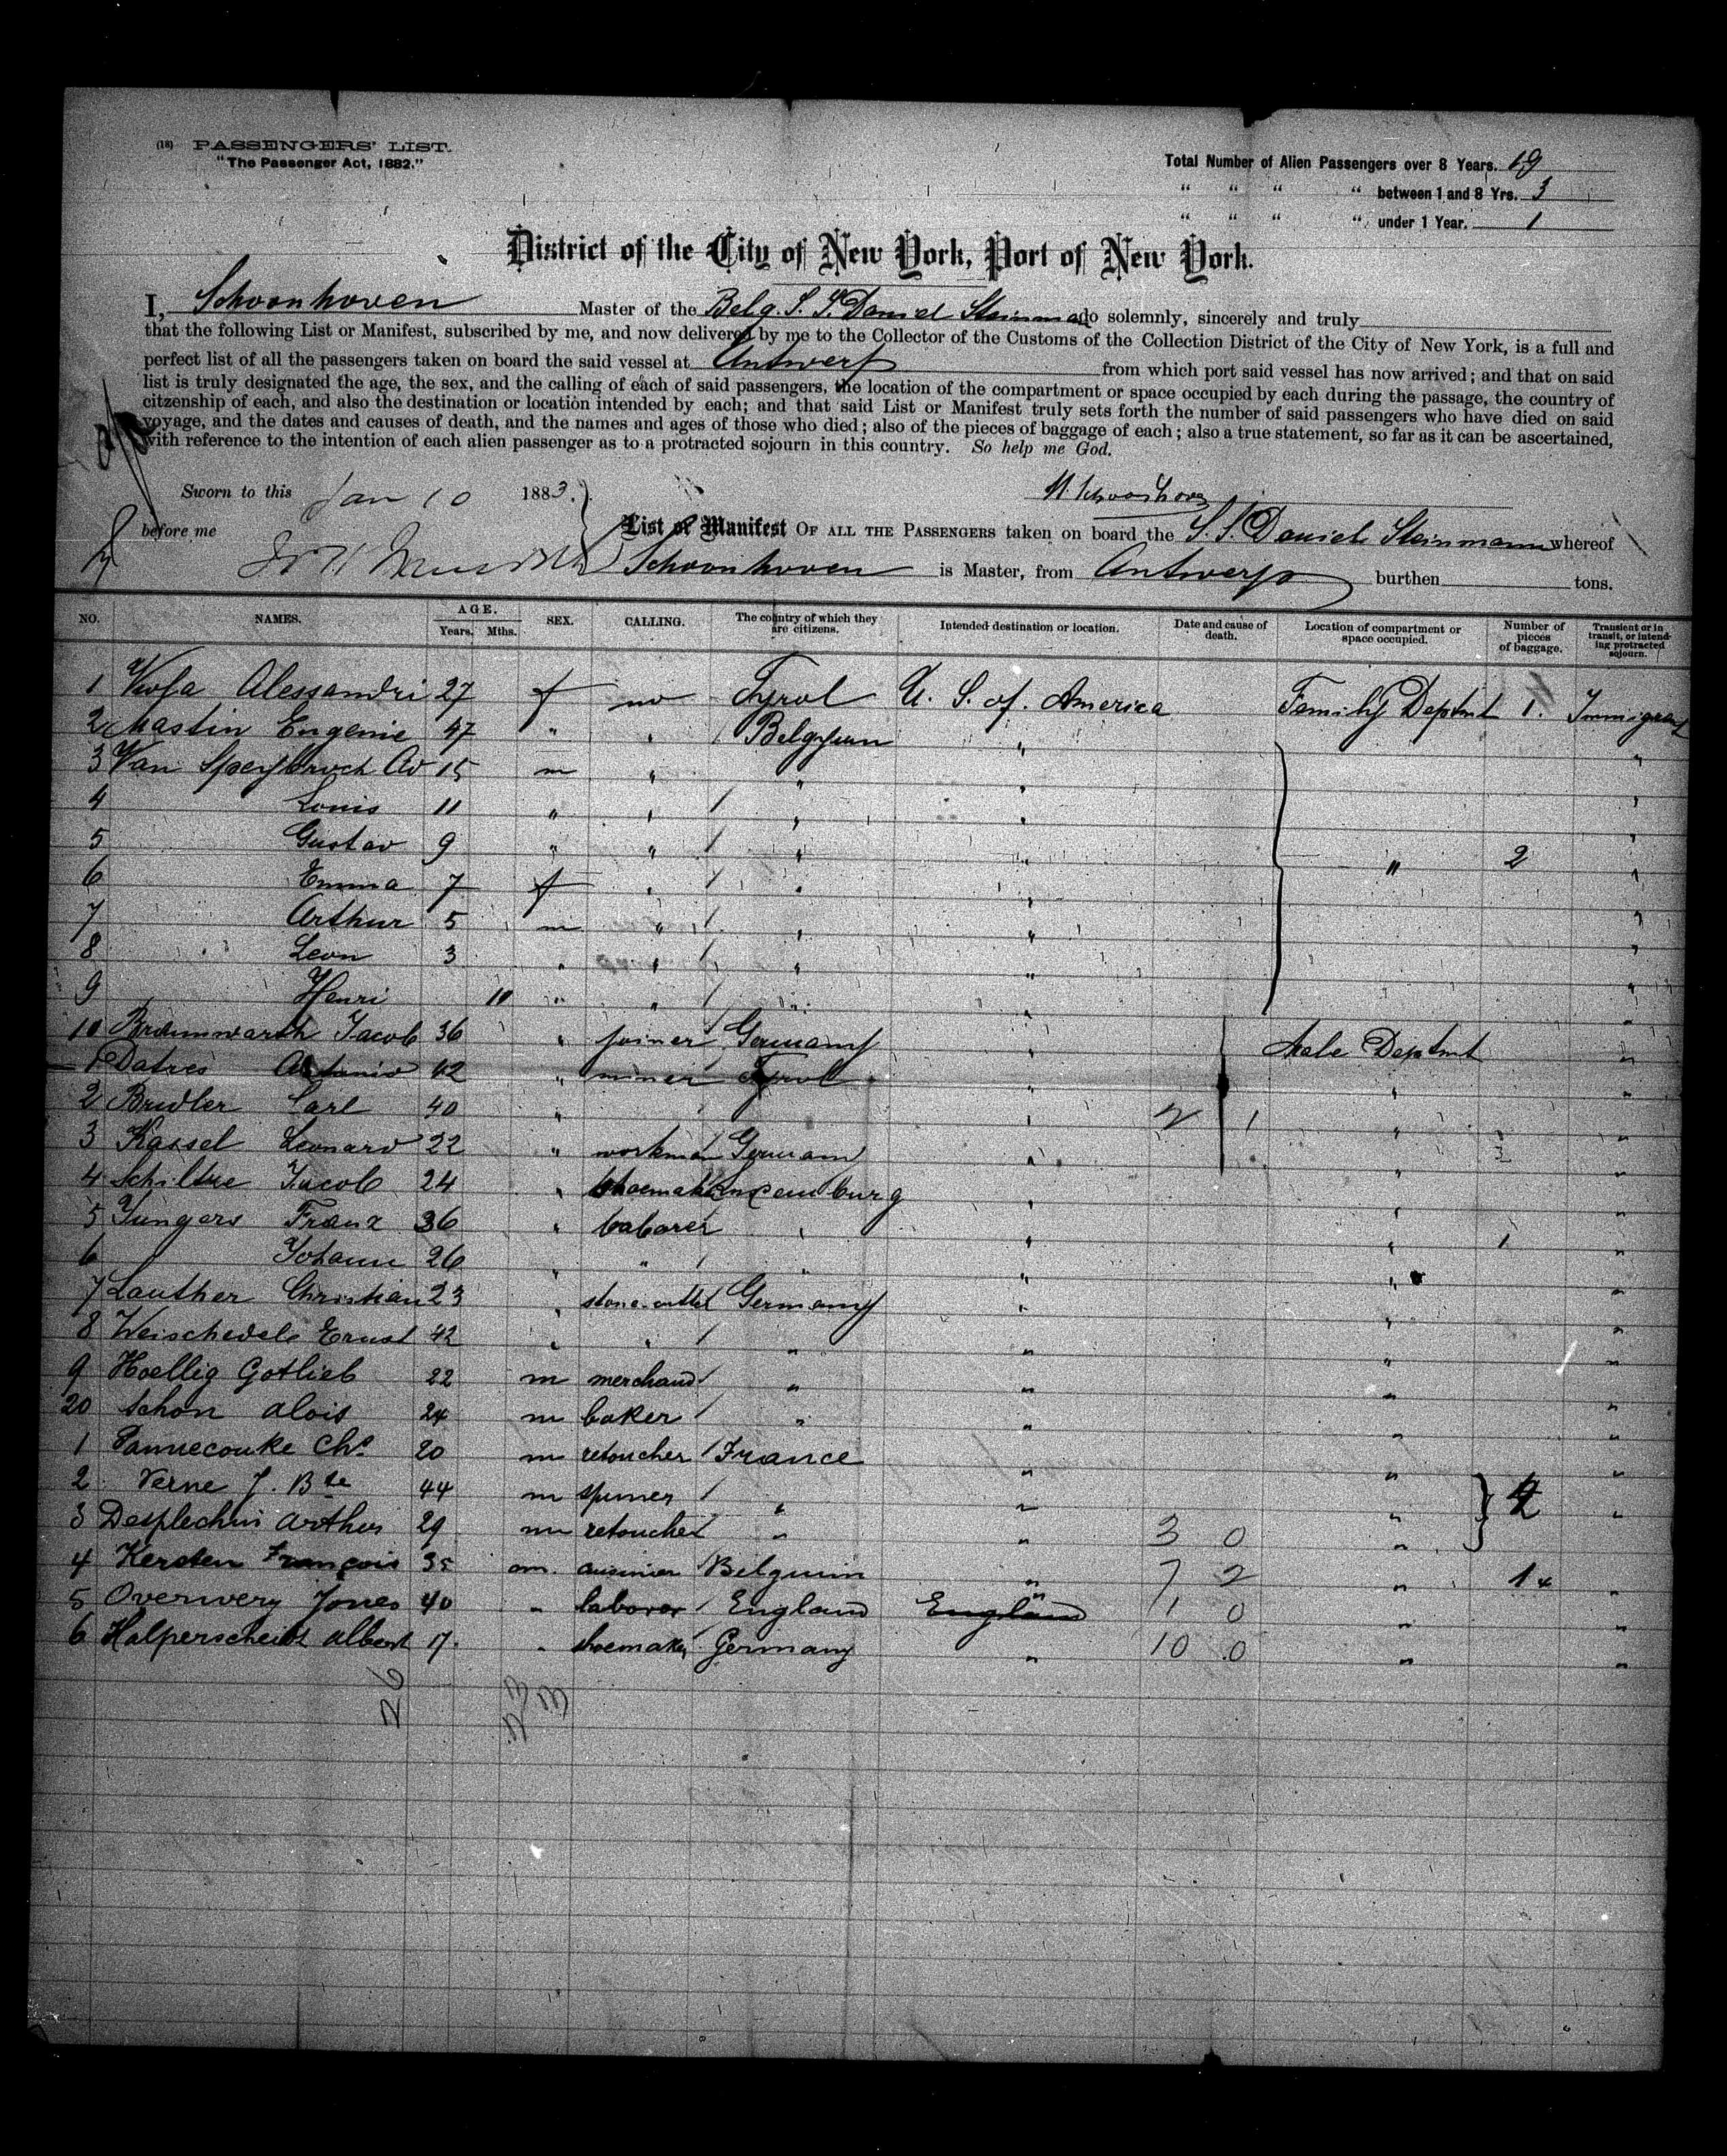 (18) PASSENGERS' LIST.
"The Passenger Act, 1882."
Total Number of Alien Passengers over 8 Years. 19
" " " " between 1 and 8 Yrs. 3
" " " " under 1 Year. 1
District of the City of New York, Port of New York.
I, Schoonhoven Master of the Belg. S. S. Daniel Steinmann do solemnly, sincerely and truly
that the following List or Manifest, subscribed by me, and now delivered by me to the Collector of the Customs of the Collection District of the City of New York, is a full and
perfect list of all the passengers taken on board the said vessel at Antwerp from which port said vessel has now arrived; and that on said
list is truly designated the age, the sex, and the calling of each of said passengers, the location of the compartment or space occupied by each during the passage, the country of
citzenship of each, and also the destination or location intended by each; and that said List or Manifest truly sets forth the number of said passengers who have died on said
voyage, and the dates and causes of death, and the names and ages of those who died; also of the pieces of baggage of each; also a true statement, so far as it can be ascertained,
with reference to the intention of each alien passenger as to a protracted sojourn in this country. So help me God.
Sworn to this Jan 10 1883. H. Schoonhoven
before me
List or Manifest OF ALL THE PASSENGERS taken on board the S. S. Daniel Steinmann whereof
Schoonhoven is Master, from Antwerp burthen tons.
NO. NAMES. AGE. Years. Mths. SEX. CALLING. The country of which they are citizens. Intended destination or location. Date and cause of death. Location of compartment or space occupied. Number of pieces of baggage. Transient or in transit, or intending protracted sojourn.
1 Alessandri 27 f no Tyrol U. S. of America Family Deptmt 1. Immigrant
2 Mastin Eugenie 47 " " Belgium " "
3 Van Speybroch 15 m " " " "
4 Louis 11 " " " " "
5 Gustav 9 " " " " " 2 "
6 Emma 7 f " " " "
7 Arthur 5 m " " " "
8 Leon 3 " " " " "
9 Henri 10 " " " " "
10 Braunwarth Jacob 36 " joiner Germany " Male Deptmt "
1 Datres Antonio 42 " miner Tyrol " " "
2 Bridler Carl 40 " " 2 1 " "
3 Kassel Leonard 22 " workman German " " "
4 Schiltze Jacob 24 " shoemaker Luxemburg " " "
5 Jungers Franz 36 " laborer " " " 1 "
6 Johann 26 " " " " " "
7 Lauther Christian 23 " stone-cutter Germany " " "
8 Weischedele Ernst 42 " " " " " "
9 Hoellig Gotlieb 22 m merchand " " " "
20 Schon Alois 24 m baker " " " "
1 Pannecouke Chs 20 m retoucher France " " "
2 Verne J. Bte 44 m " " " 4 "
3 Desplechin Arthur 29 m retoucher " " 3 0 "
4 Kersten François 35 m. cuisinier Belguim " 7 2 " 1 "
5 Overwery Jones 40 " laborer England England 1 0 " "
6 Halperscheidt Albert 17. " shoemaker Germany " 10 0 " "
26 23 3